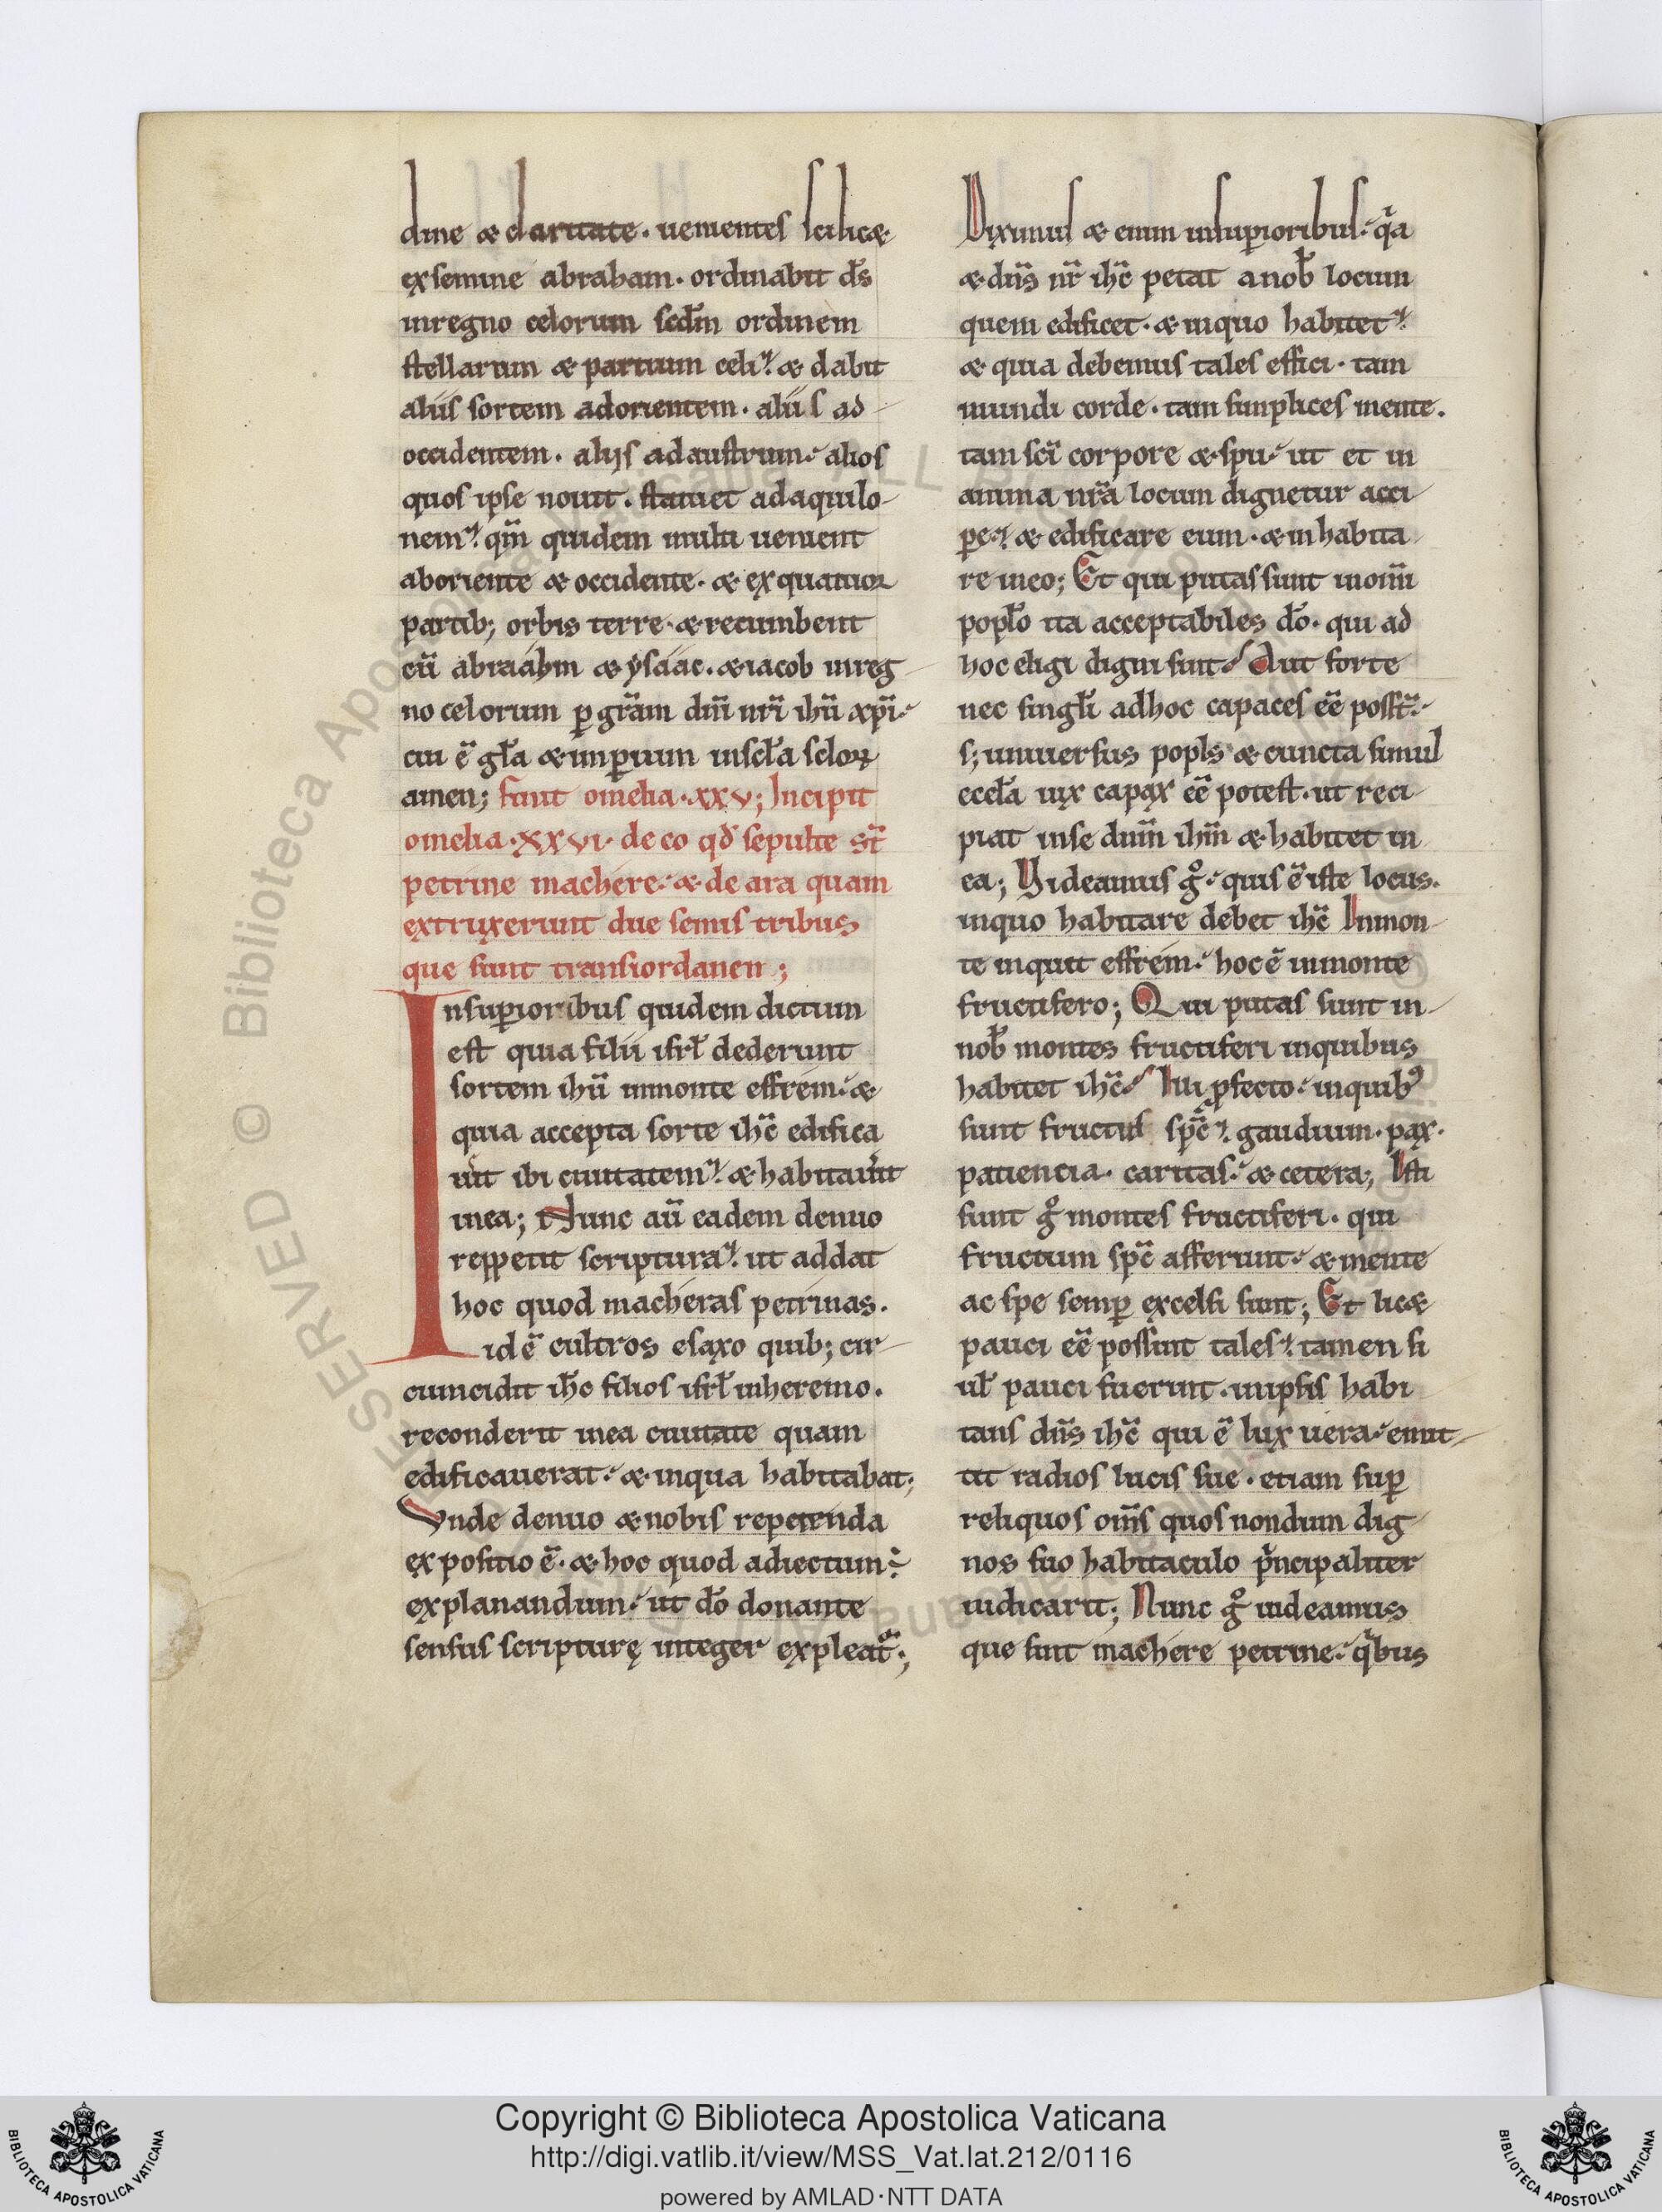 dine & claritate. uenientes scilic&
exsemine abraham. ordinabit d̅s
inregno celorum scd̅m ordinem
stellarum & partium celi. & dabit
aliis sortem adorientem. aliis ad
occidentem. alijs adaustrum. alios
quos ipse nouit. statuet adaquilo-
nem. qm̅ quidem multi uenient
aboriente & occidente. & exquatuor
partib; orbis terre. & recumbent
cu̅ abraáhm & ysáác. & iacob inreg
no celorum p̲ gr̅am dn̅i nr̅i ihu̅ xp̅i.
cui e̅ gl̅a & imp̲ium inscl̅a sclo̅ꝝ
amen; finit omelia. xxv; Incipit
omelia. xxvi. de eo qđ sepulte st̅
petrine machere. & de ara quam
extruxerunt due semis tribus
que sunt transiordanen;
Insup̲ioribus quidem dictum
est quia filii isrł dederunt
sortem ihu̅ inmonte effrém. &
quia accepta sorte ihc̅ edifica
uit ibi ciuitatem. & habitauit
inea; Nunc au̅ eadem denuo
reppetit scriptura. ut addat
hoc quod macheras petrinas.
id e̅ cultros esaxo quib; cir
cumcidit ih̅c filios isrł inheremo.
reconderit inea ciuitate quam
edificauerat. & inqua habitabat;
Vnde denuo & nobis repetenda
expositio e̅. & hoc quod adiectum.
explanandum. ut do̅ donante
sensus scripturę integer expleat̅;
Diximus & enim insup̲ioribus. qa
& dn̅s nr̅ ihc̅ petat anob̅ locum
quem edificet. & inquo habitet.
& quia debemus tales effici. tam
mundi corde. tam simplices mente.
tam sci̅ corpore & spu̅. ut et in
anima nr̅a locum dignetur acci
p̲e. & edificare eum. & inhabita
re ineo; Et qui putas sunt inoi̅m
popl̅o ita acceptabiles do̅. qui ad
hoc eligi digni sint. Aut forte
nec singl̅i adhoc capaces ee̅ posst̅.
s; uniuersus popls̅ & cuncta simul
eccl̅a uix capax ee̅ potest. ut reci
piat inse dnm̅ ihm̅ & habitet in
ea; Videamus g̊. quis e̅ iste locus.
inquo habitare debet ihc̅ Inmon
te inquit effrém. hoc e̅ inmonte
fructifero; Qui putas sunt in
nob̅ montes fructiferi inquibus
habitet ihc̅. Illi p̲fecto. inquib⁹
sunt fructus spc̅. gaudium. pax.
patiencia. caritas. & cetera; Isti
sunt g̊ montes fructiferi. qui
fructum spc̅ afferunt. & mente
ac spe semp̲ excelsi sunt; Et lic&
pauci ee̅ possint tales. tamen si
ul̅ pauci fuerint. inipsis habi
tans dn̅s ihc̅ qui e̅ lux uera. emit
tit radios lucis sue. etiam sup̲
reliquos om̅s quos nondum dig
nos suo habitaculo pncipaliter
iudicarit; Nunc g̊ uideamus
que sint machere petrine. qbus
Copyright © Biblioteca Apostolica Vaticana
http://digi.vatlib.it/view/MSS_Vat.lat.212/0116
powered by AMLAD·NTT DATA
BIBLIOTECA APOSTOLICA VATICANA
BIBLIOTECA APOSTOLICA VATICANA